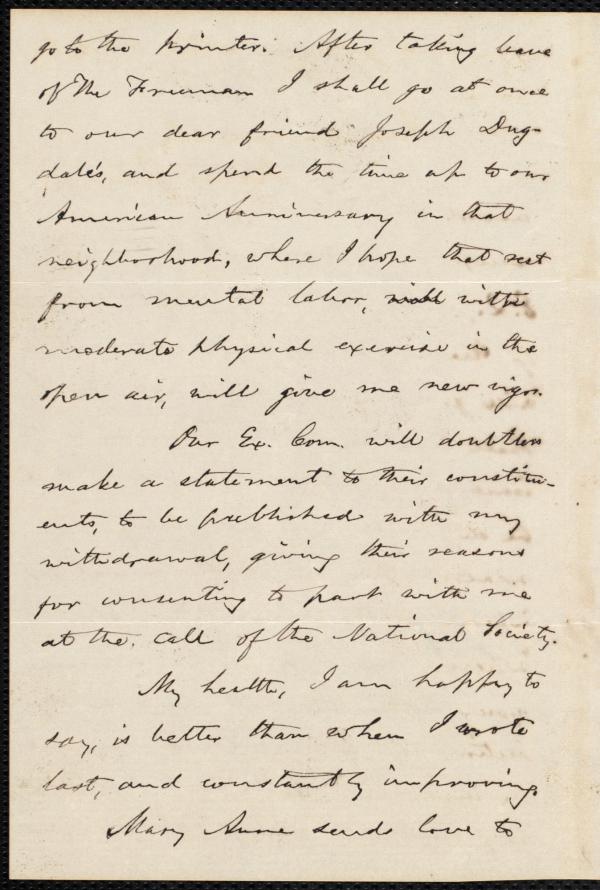 go to the printer. After taking leave
of the Freeman I shall go at once
to our dear friend Joseph Dug-
dale's, and spend the time up to our
American Anniversary in that
neighborhood, where I hope that rest
from mental labor, with
moderate physical exercise in the
open air, will give me new vigor.
Our Ex. Com. will doubtless
make a statement to their constitu-
ents, to be published with my
withdrawal, giving their reasons
for consenting to part with me
at the call of the National Society.
My health, I am happy to
say, is better than when I wrote
last, and constantly improving.
Mary Anne sends love to